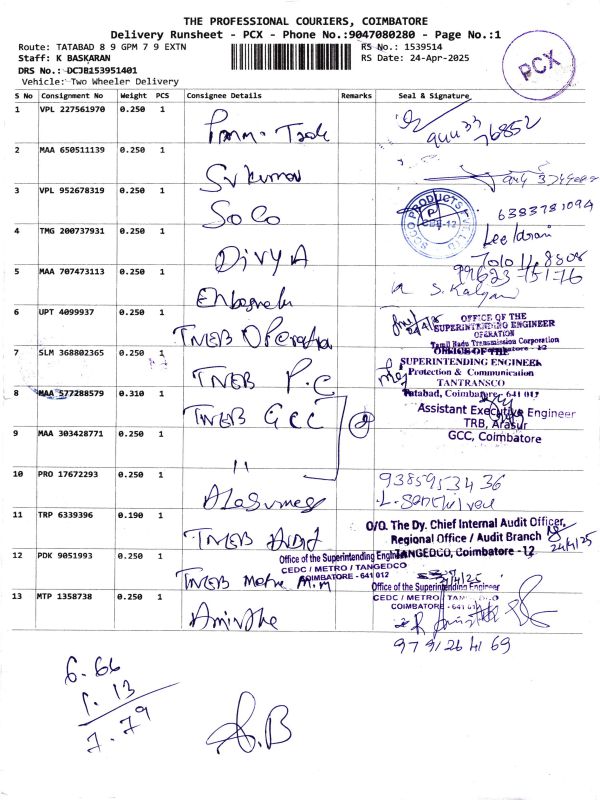 THE PROFESSIONAL COURIERS, COIMBATORE
Delivery Runsheet - PCX - Phone No.:9047080280 - Page No.:1
Route: TATABAD 8 9 GPM 7 9 EXTN
RS No.: 1539514
Staff: K BASKARAN
RS Date: 24-Apr-2025
DRS No.: DCJB153951401
Vehicle: Two Wheeler Delivery
PCX
S No Consignment No Weight PCS Consignee Details Remarks Seal & Signature
1 VPL 227561970 0.250 1
94433 76852
2 MAA 650511139 0.250 1 Sv kumar
3 VPL 952678319 0.250 1 SoCo
SOCO PRODUCTS PVT LTD
CBE-12
6383781094
4 TMG 200737931 0.250 1 DIVYA
5 MAA 707473113 0.250 1
99623-15116
S. Kalyani
6 UPT 4099937 0.250 1 TNEB Operation
OFFICE OF THE
SUPERINTENDING ENGINEER
OPERATION
Tamil Nadu Transmission Corporation
7 SLM 368802365 0.250 1 TNEB P.C
OFFICE OF THE
SUPERINTENDING ENGINEER
Protection & Communication
TANTRANSCO
Tatabad, Coimbatore- 641 012
8 MAA 577288579 0.310 1 TNEB GCC
Assistant Executive Engineer
TRB, Arasur
GCC, Coimbatore
9 MAA 303428771 0.250 1 "
10 PRO 17672293 0.250 1
9385953436
11 TRP 6339396 0.190 1 TNEB Audit
O/O. The Dy. Chief Internal Audit Officer,
Regional Office / Audit Branch
TANGEDCO, Coimbatore -12
24/4/25
12 PDK 9051993 0.250 1 TNEB Metro M.M
Office of the Superintending Engineer
CEDC / METRO / TANGEDCO
COIMBATORE - 641 012
24/4/25
Office of the Superintending Engineer
CEDC / METRO / TANGEDCO
COIMBATORE - 641 012
13 MTP 1358738 0.250 1 Amirtha
9791264169
6.66
1.13
7.79